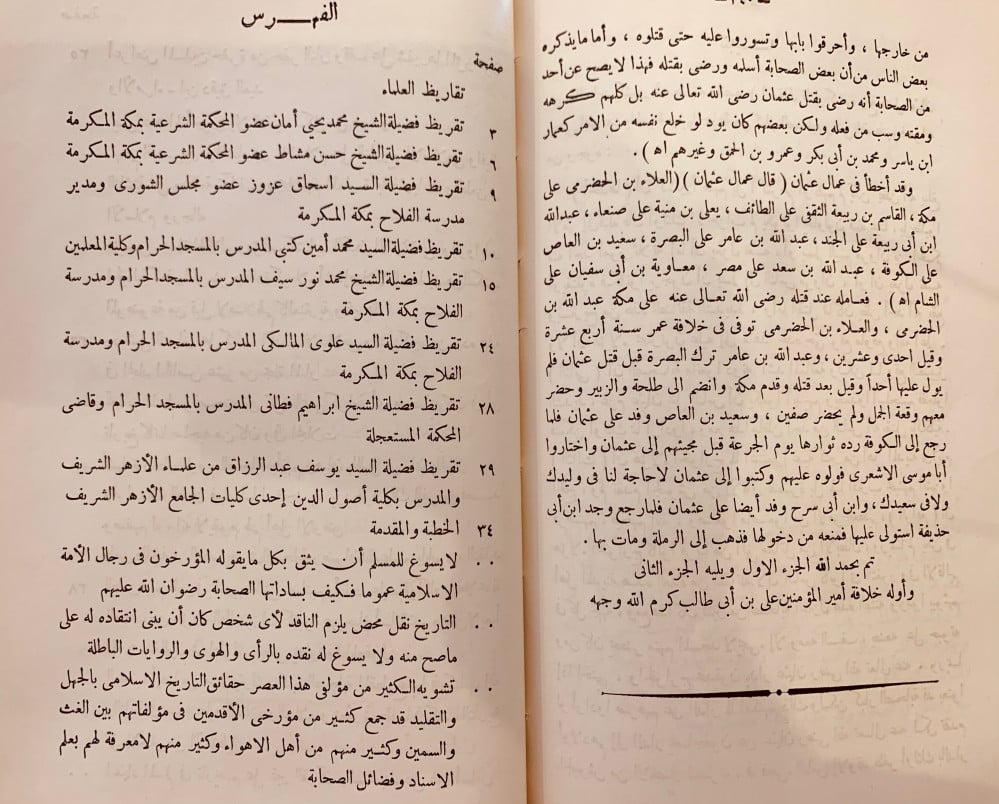 من خارجها ، وأحرقوا بابها وتسوروا عليه حتى قتلوه ، وأما مايذكره
بعض الناس من أن بعض الصحابة أسلمه ورضى بقتله فهذا لا يصح عن أحد
من الصحابة أنه رضى بقتل عثمان رضى الله تعالى عنه بل كلهم كرهه
ومقته وسب من فعله ولكن بعضهم كان يود لو خلع نفسه من الامر كعمار
ابن ياسر ومحمد بن أبى بكر وعمرو بن الحمق وغيرهم اه ) .
وقد أخطأ فى عمال عثمان ( قال عمال عثمان ) (العلاء بن الحضرمى على
مكة ، القاسم بن ربيعة الثقفى على الطائف ، يعلى بن منية على صنعاء ، عبدالله
ابن أبى ربيعة على الجند ، عبد الله بن عامر على البصرة ، سعيد بن العاص
على الكوفة ، عبد الله بن سعد على مصر ، معاوية بن أبى سفيان على
الشام اه ) . فعامله عند قتله رضى الله تعالى عنه على مكة عبد الله بن
الحضرمى ، والعلاء بن الحضرمى توفى فى خلافة عمر سنة أربع عشرة
وقيل احدى وعشرين ، وعبد الله بن عامر ترك البصرة قبل قتل عثمان فلم
يول عليها أحداً وقيل بعد قتله وقدم مكة وانضم الى طلحة والزبير وحضر
معهم وقعة الجمل ولم يحضر صفين ، وسعيد بن العاص وفد على عثمان فلما
رجع إلى الكوفة رده ثوارها يوم الجرعة قبل مجيئهم إلى عثمان واختاروا
أبا موسى الاشعرى فولوه عليهم وكتبوا إلى عثمان لاحاجة لنا فى وليدك
ولافى سعيدك ، وابن أبى سرح وفد أيضا على عثمان فلما رجع وجد ابن أبى
حذيفة استولى عليها فمنعه من دخولها فذهب إلى الرملة ومات بها .
تم بحمد الله الجزء الاول ويليه الجزء الثانى
وأوله خلافة أمير المؤمنين على بن أبى طالب كرم الله وجهه
الفهرس
صفحة
تقاريظ العلماء
٣ تقريظ فضيلة الشيخ محمد يحيى أمان عضو المحكمة الشرعية بمكة المكرمة
٦ تقريظ فضيلة الشيخ حسن مشاط عضو المحكمة الشرعية بمكة المكرمة
٩ تقريظ فضيلة السيد اسحاق عزوز عضو مجلس الشورى ومدير
مدرسة الفلاح بمكة المكرمة
١٠ تقريظ فضيلة السيد محمد أمين كتبى المدرس بالمسجد الحرام وكلية المعلمين
١٥ تقريظ فضيلة الشيخ محمد نور سيف المدرس بالمسجد الحرام ومدرسة
الفلاح بمكة المكرمة
٢٤ تقريظ فضيلة السيد علوى المالكى المدرس بالمسجد الحرام ومدرسة
الفلاح بمكة المكرمة
٢٨ تقريظ فضيلة الشيخ ابراهيم فطانى المدرس بالمسجد الحرام وقاضى
المحكمة المستعجلة
٢٩ تقريظ فضيلة السيد يوسف عبد الرزاق من علماء الأزهر الشريف
والمدرس بكلية أصول الدين إحدى كليات الجامع الأزهر الشريف
٣٤ الخطبة والمقدمة
. . لا يسوغ للمسلم أن يثق بكل مايقوله المؤرخون فى رجال الأمة
الاسلامية عموما فكيف بساداتها الصحابة رضوان الله عليهم
. . التاريخ نقل محض يلزم الناقد لأى شخص كان أن يبنى انتقاده له على
ماصح منه ولا يسوغ له نقده بالرأى والهوى والروايات الباطلة
. . تشويه الكثير من مؤلفى هذا العصر حقائق التاريخ الاسلامى بالجهل
والتقليد قد جمع كثير من مؤرخى الأقدمين فى مؤلفاتهم بين الغث
والسمين وكثير منهم من أهل الاهواء وكثير منهم لامعرفة لهم بعلم
الاسناد وفضائل الصحابة